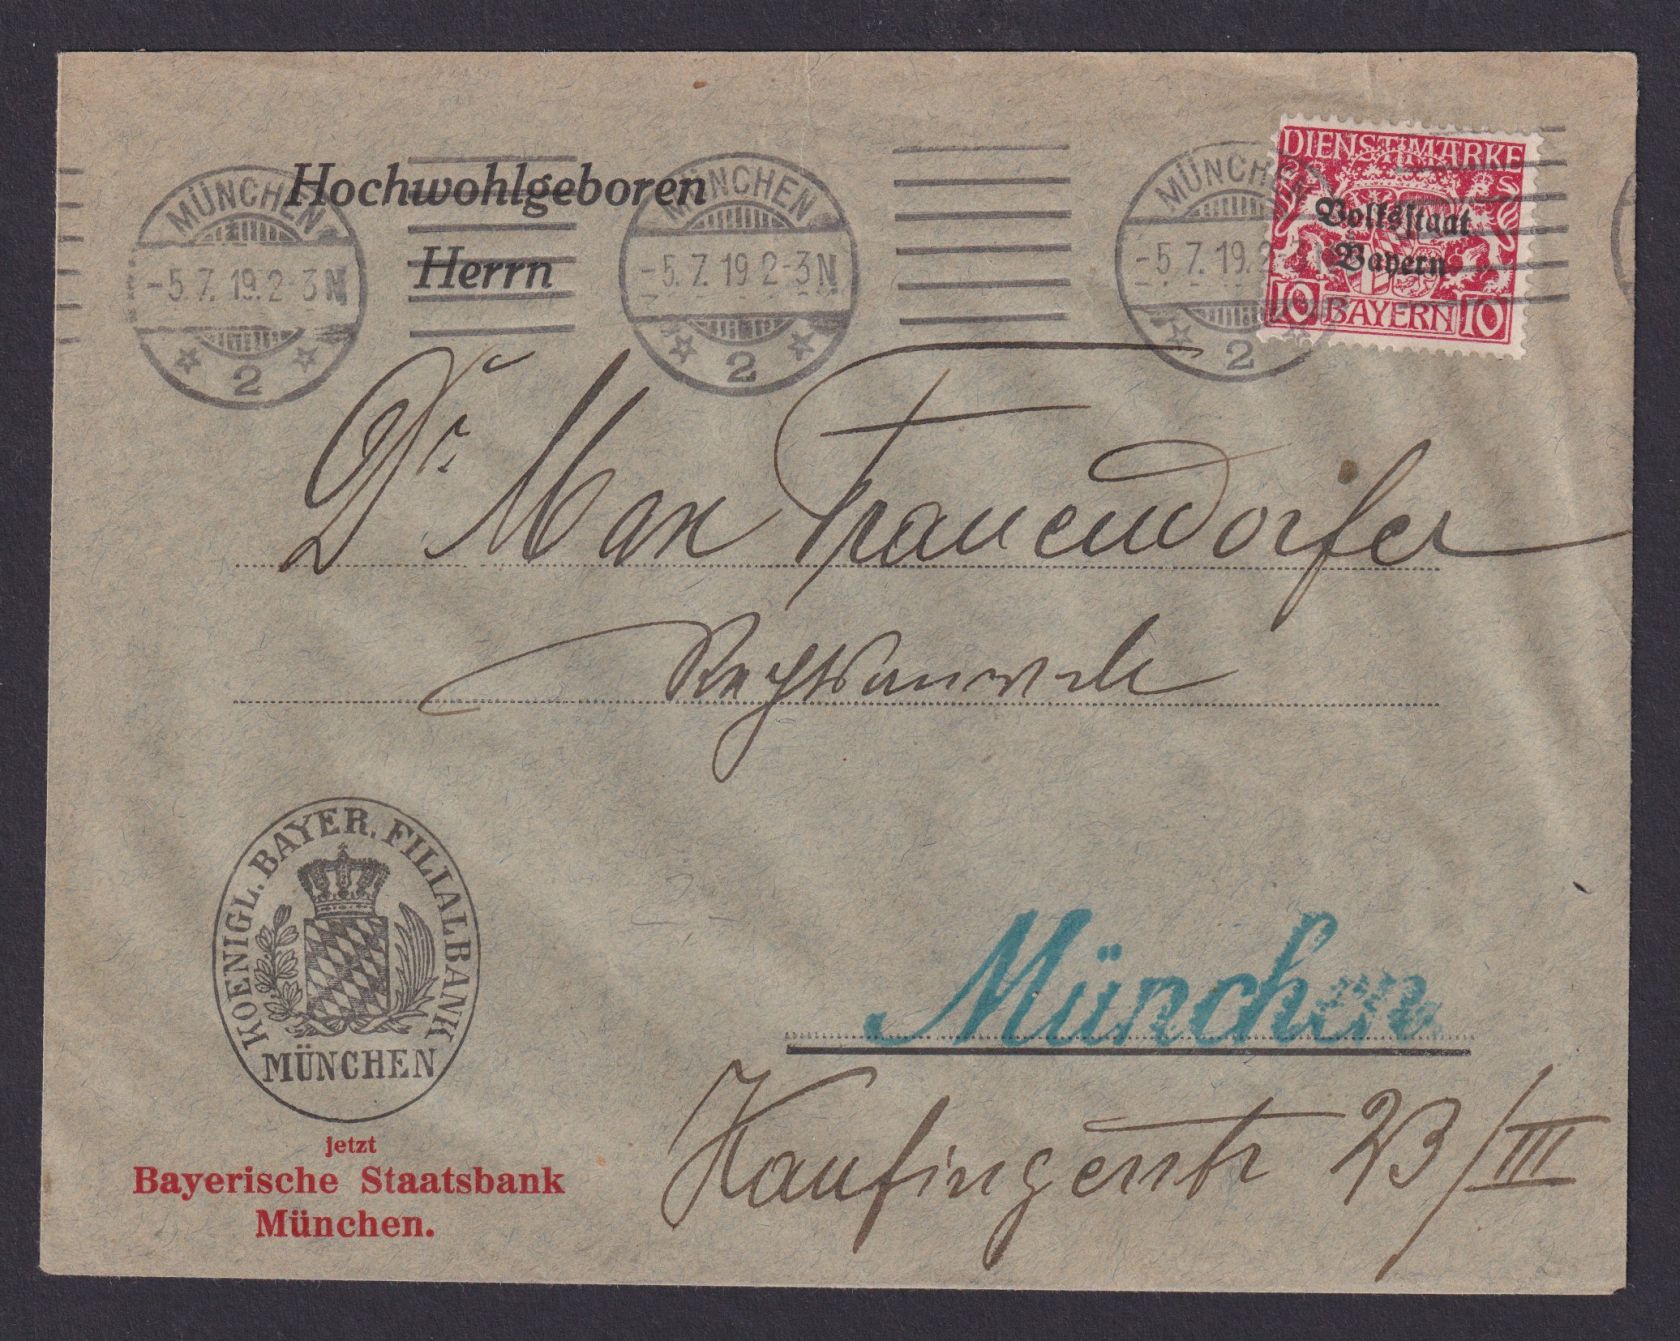 Hochwohlgeboren
Herrn
MÜNCHEN
-5.7.19.2-3N
2
MÜNCHEN
-5.7.19 2-3N
2
MÜNCHEN
-5.7.19.2-3N
2
DIENSTMARKE
Volksstaat
Bayern
10 BAYERN 10
Dr. Max Frauendorfer
Rechtsanwalt
KOENIGL. BAYER. FILIALBANK
MÜNCHEN
München
Kaufingerstr 23/III
jetzt
Bayerische Staatsbank
München.